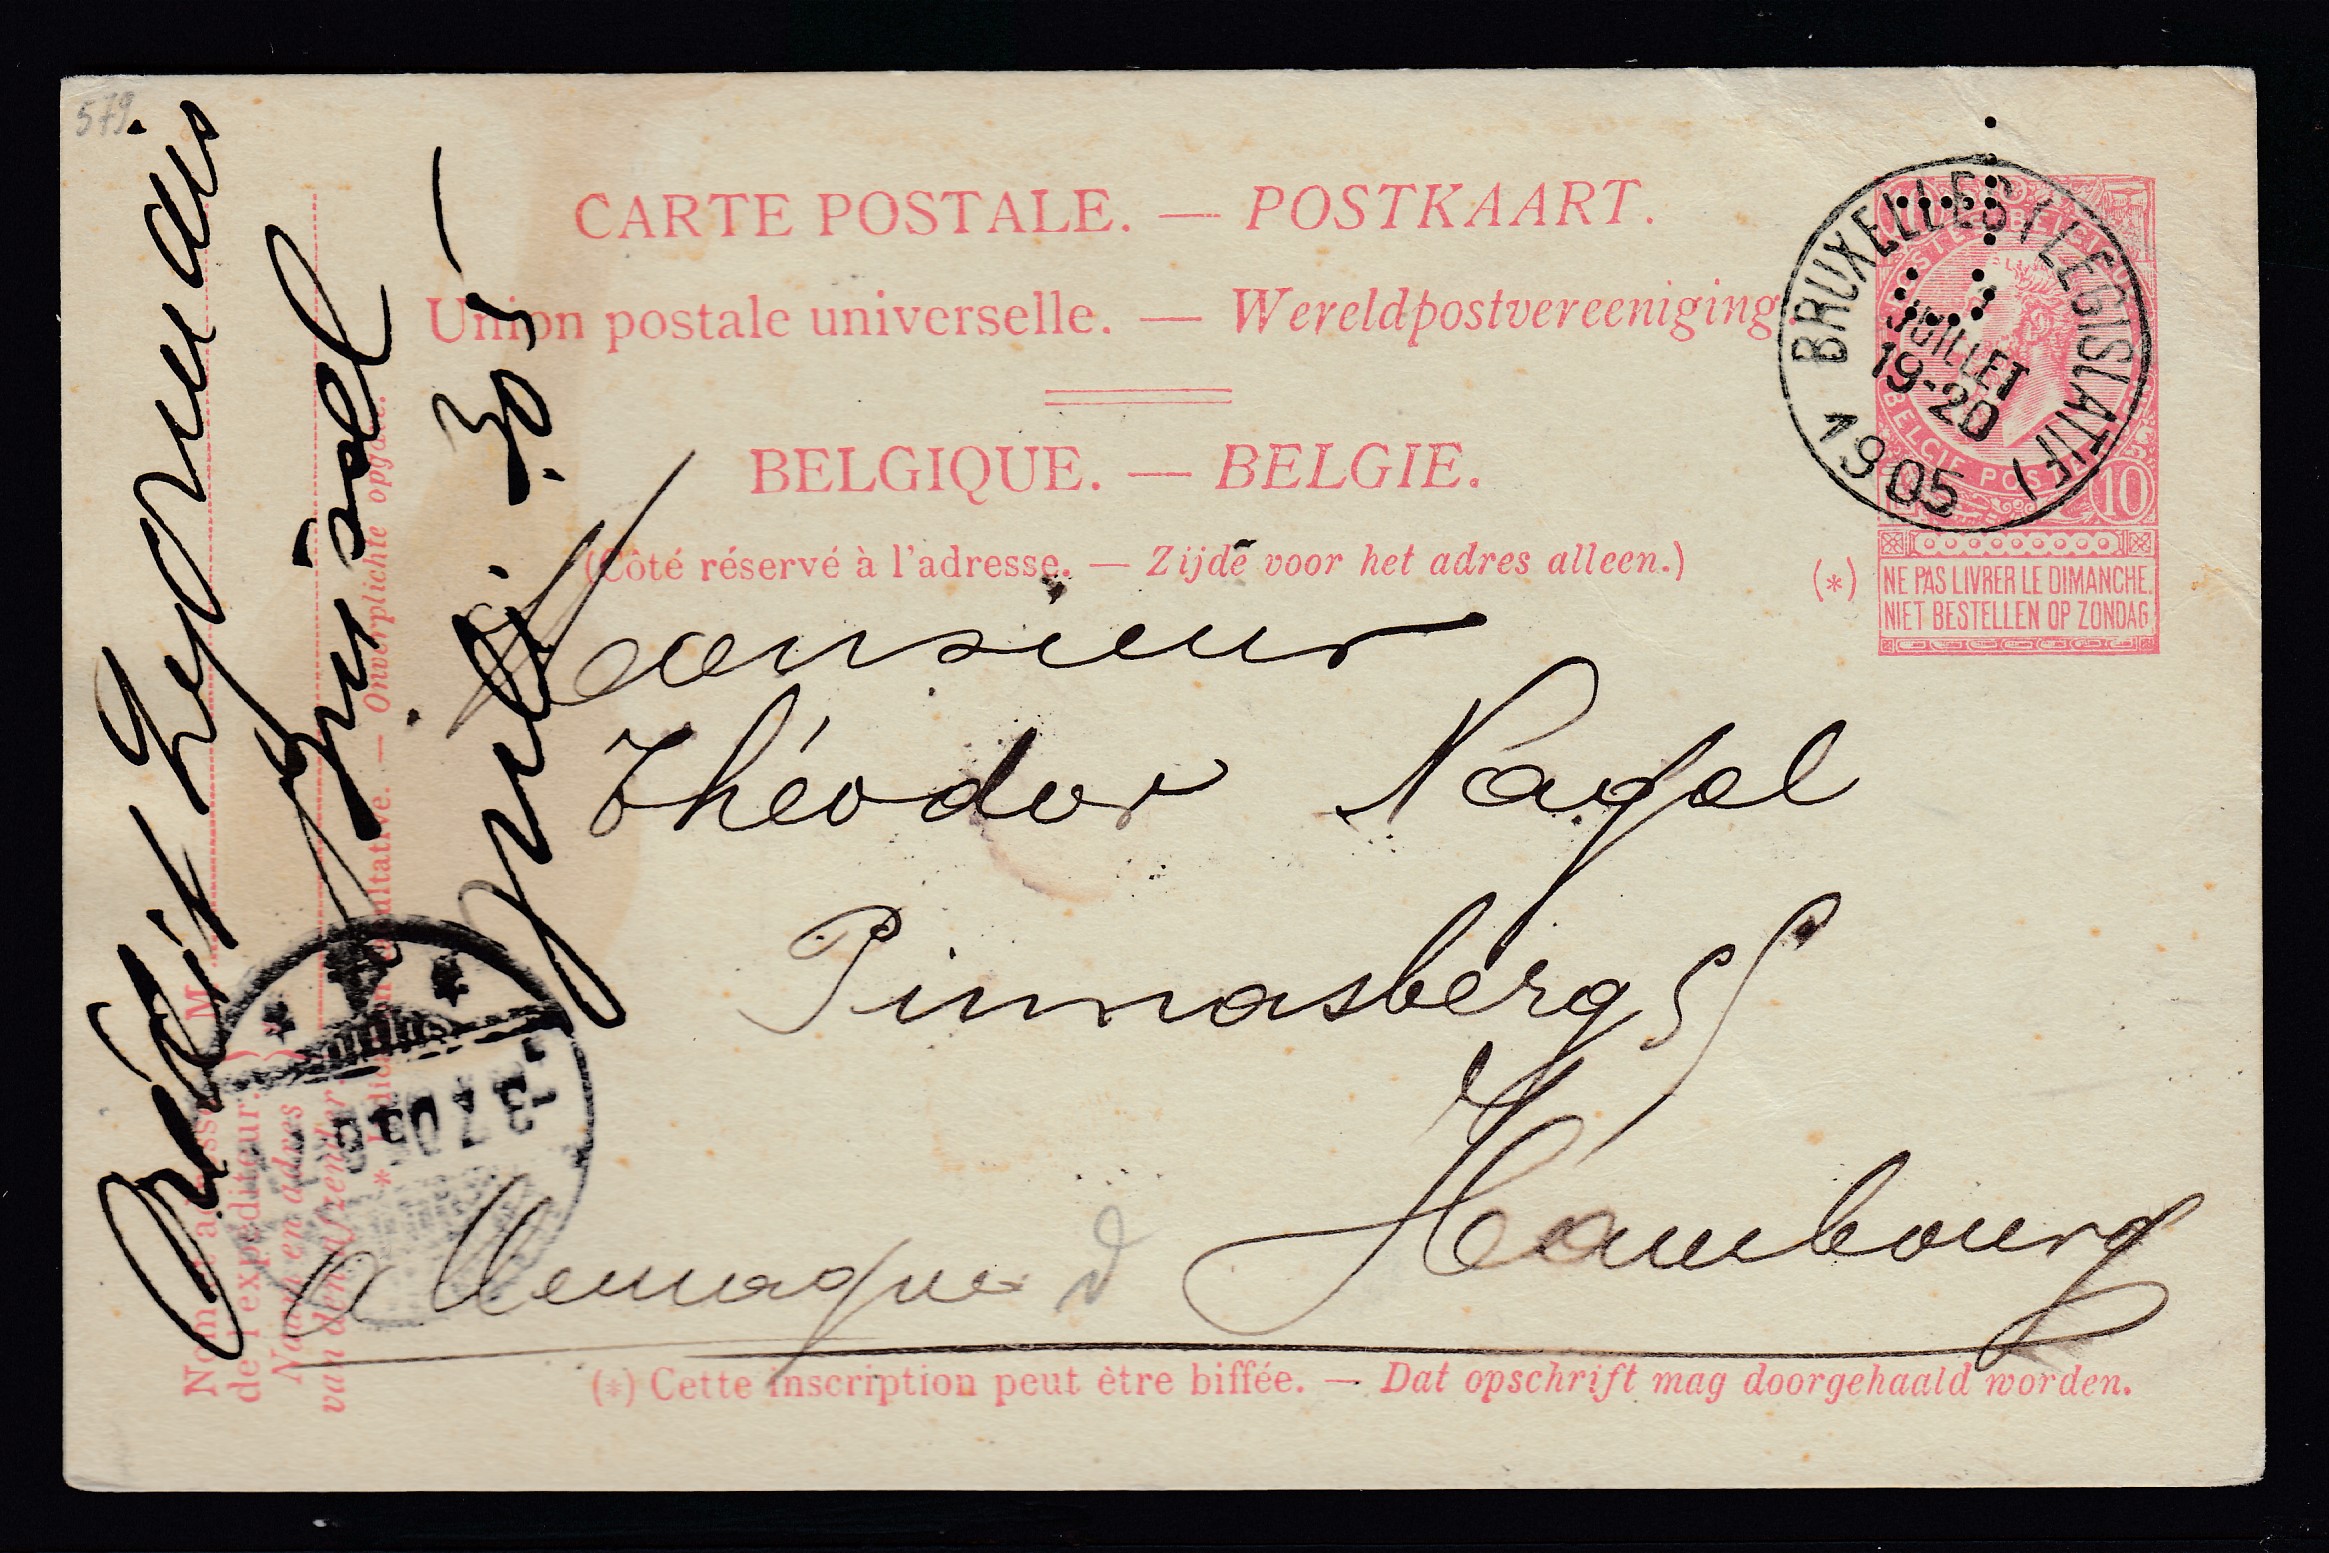 579
CARTE POSTALE. — POSTKAART.
Union postale universelle. — Wereldpostvereeniging
BELGIQUE. — BELGIE.
(Côté réservé à l'adresse. — Zijde voor het adres alleen.)
BRUXELLES (LEGISLATIF)
JUILLET
19-20
1905
10
(*) NE PAS LIVRER LE DIMANCHE.
NIET BESTELLEN OP ZONDAG
Monsieur
Théodor Nagel
Pinnasberg 55
Hambourg
Allemagne
(*) Cette inscription peut être biffée. — Dat opschrift mag doorgehaald worden.
Crédit Lyonnais
de l'expéditeur.
Naam en adres
van den afzender.
Onverplichte opgave.
3.7.05